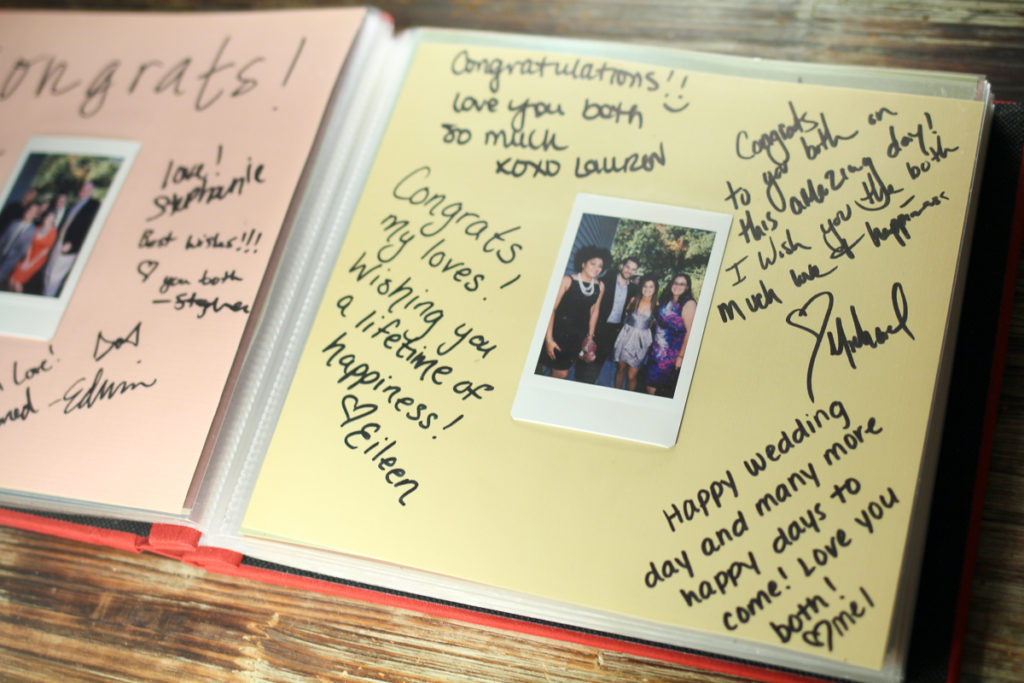 Congrats!
love!
Stephanie
Best wishes!!!
♡ you both
- Stephen
Love!
- Edwin
Congratulations!!
love you both
so much
xoxo Lauren
Congrats
my loves!
Wishing you
a lifetime of
happiness!
♡ Eileen
Congrats
to you both on
this amazing day!
I wish you the both
much love & happiness
♡ Michael
Happy wedding
day and many more
happy days to
come! Love you
both!
♡ mel